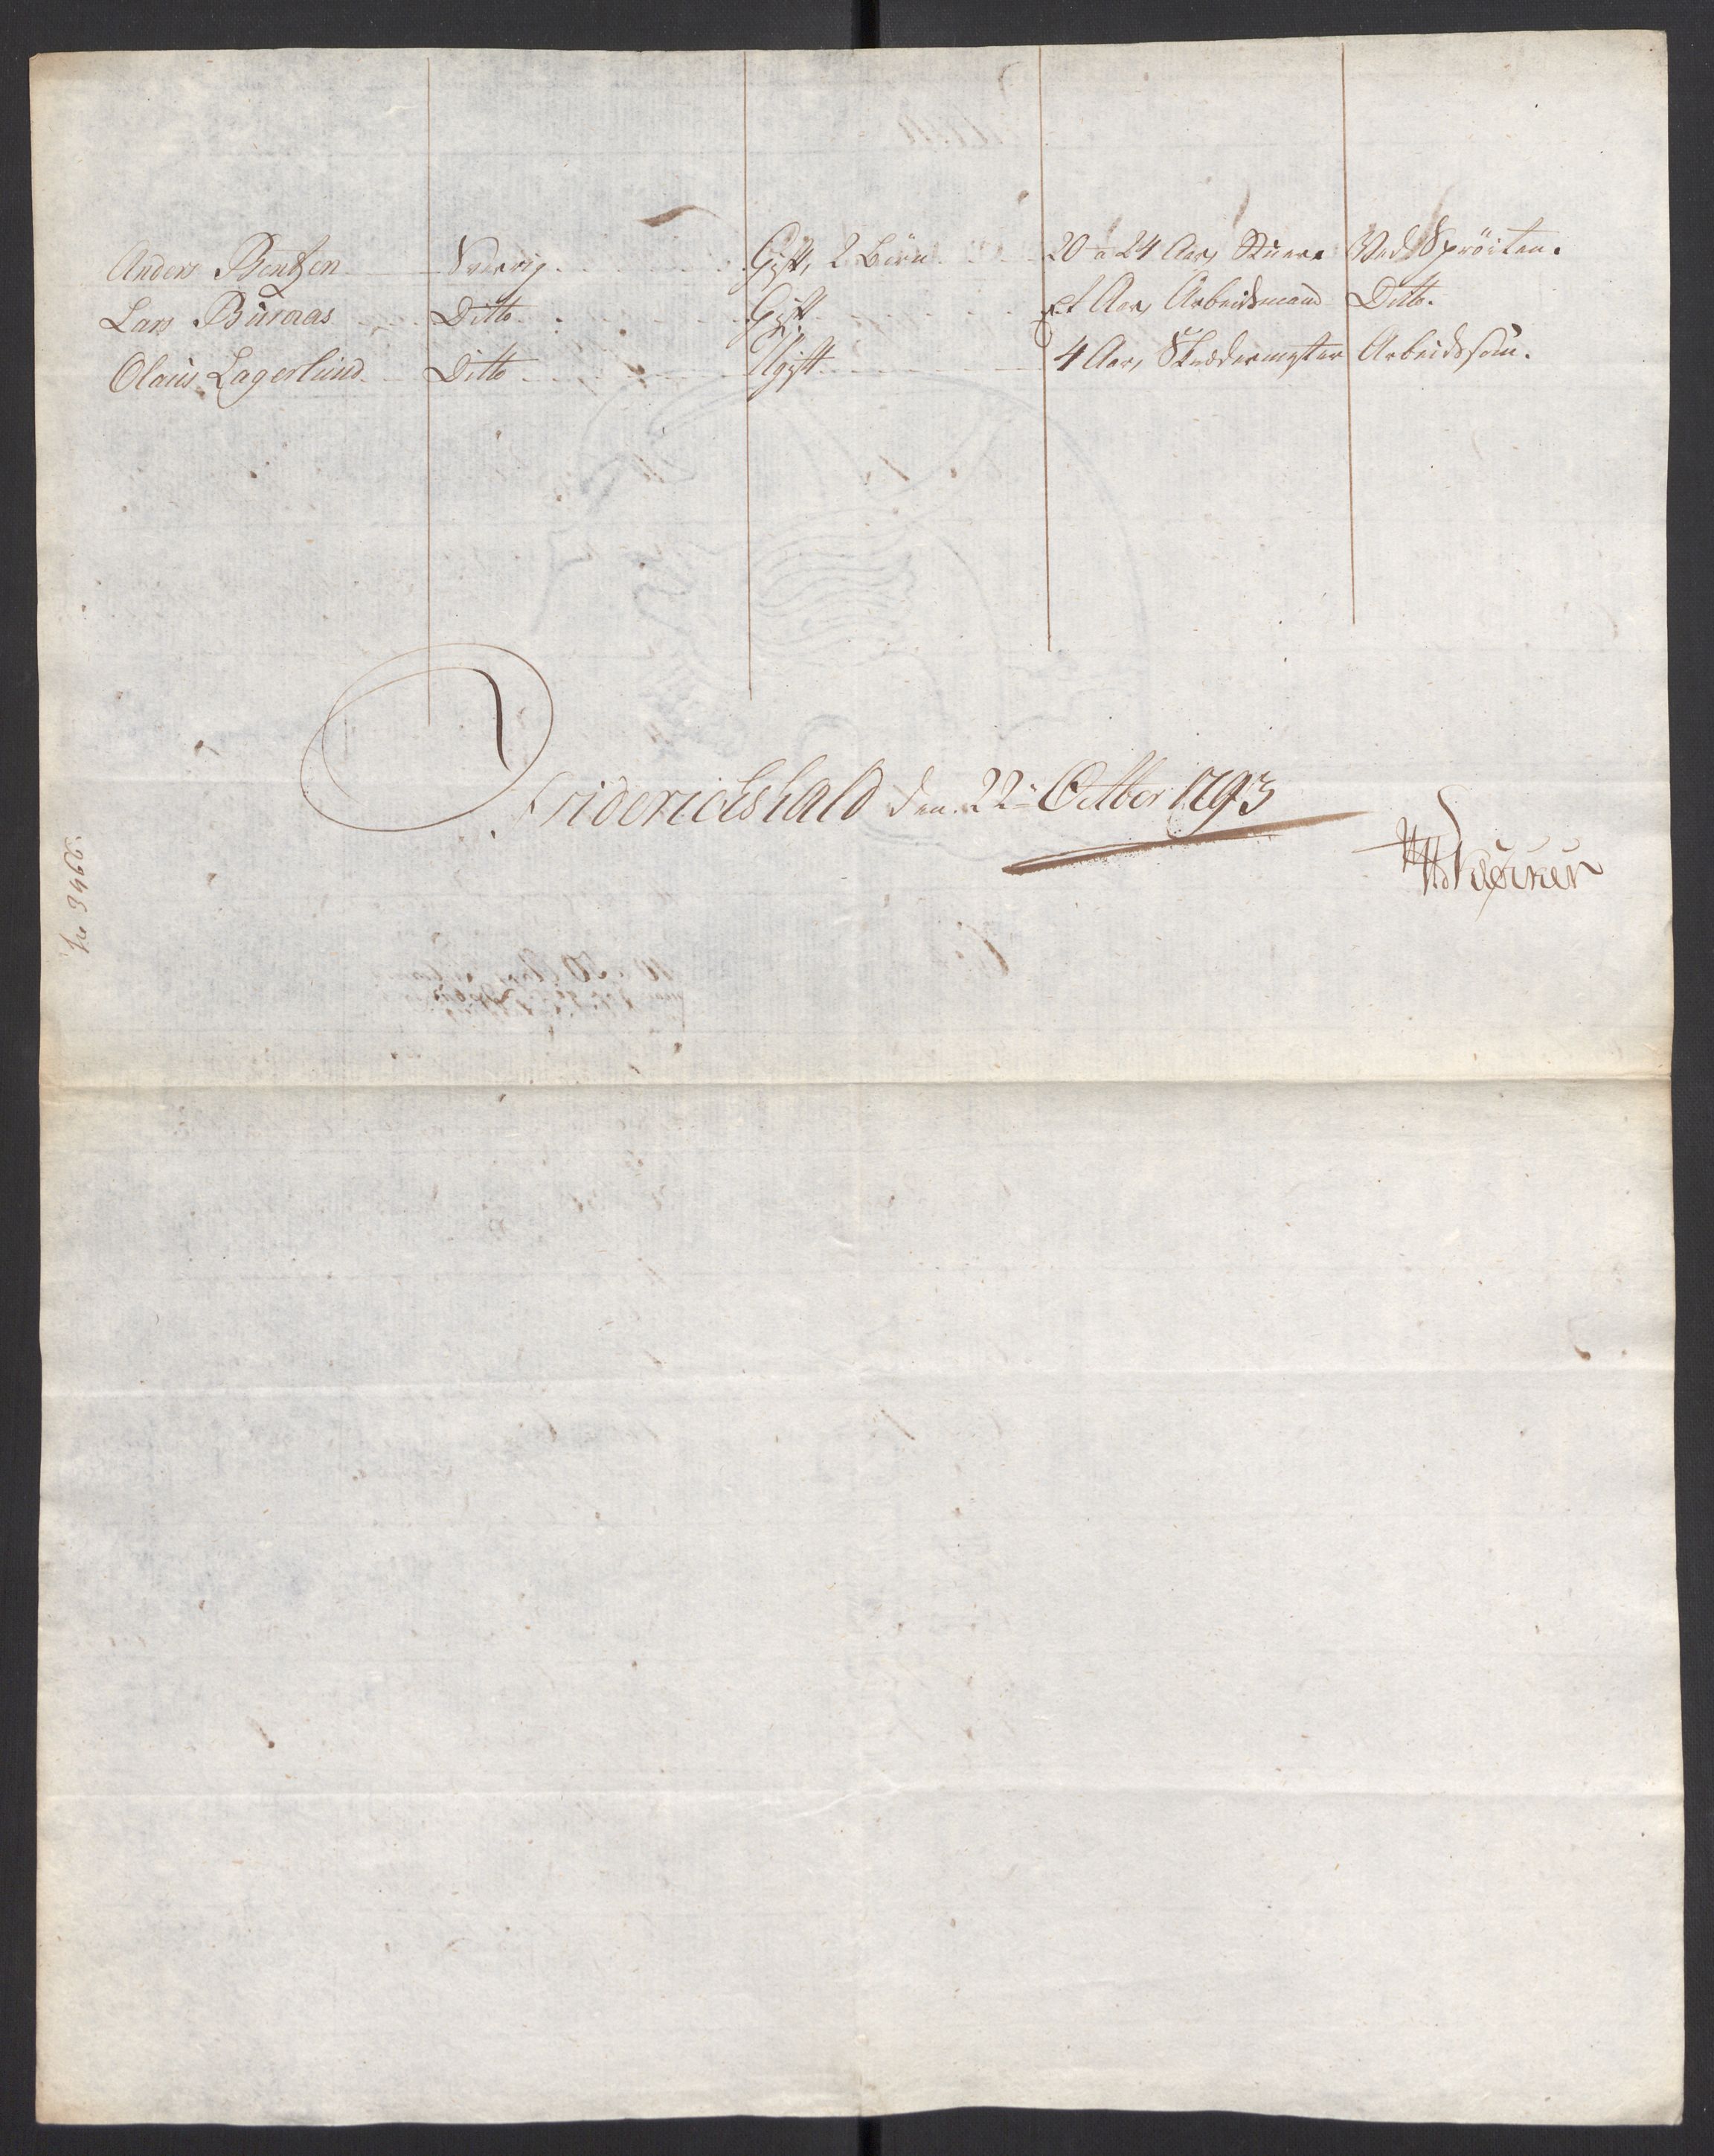 Anders Bentzen Sverrig. Gift, 2 Börn 20 a 24 Aar, Stuere Ved Spröiten.
Lars Buraas Ditto Gift Et Aar, Arbeidsmand Ditto.
Olaus Lagerlund Ditto Ugift 4 Aar, Skrædermester Arbeidssom.
Friderichshald den 22 Octbr 1793
No 3466.